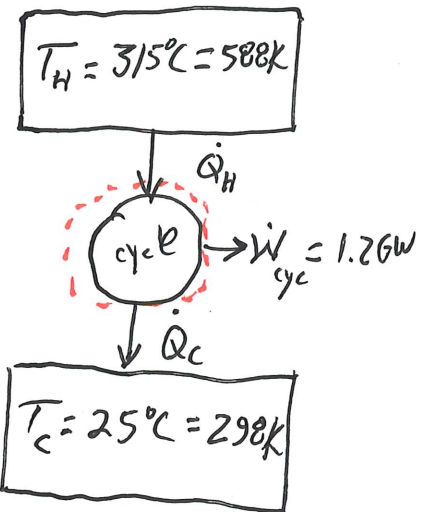 T_H = 315°C = 588K
Q̇_H
cycle
Ẇ_cyc = 1.2GW
Q̇_C
T_C = 25°C = 298K